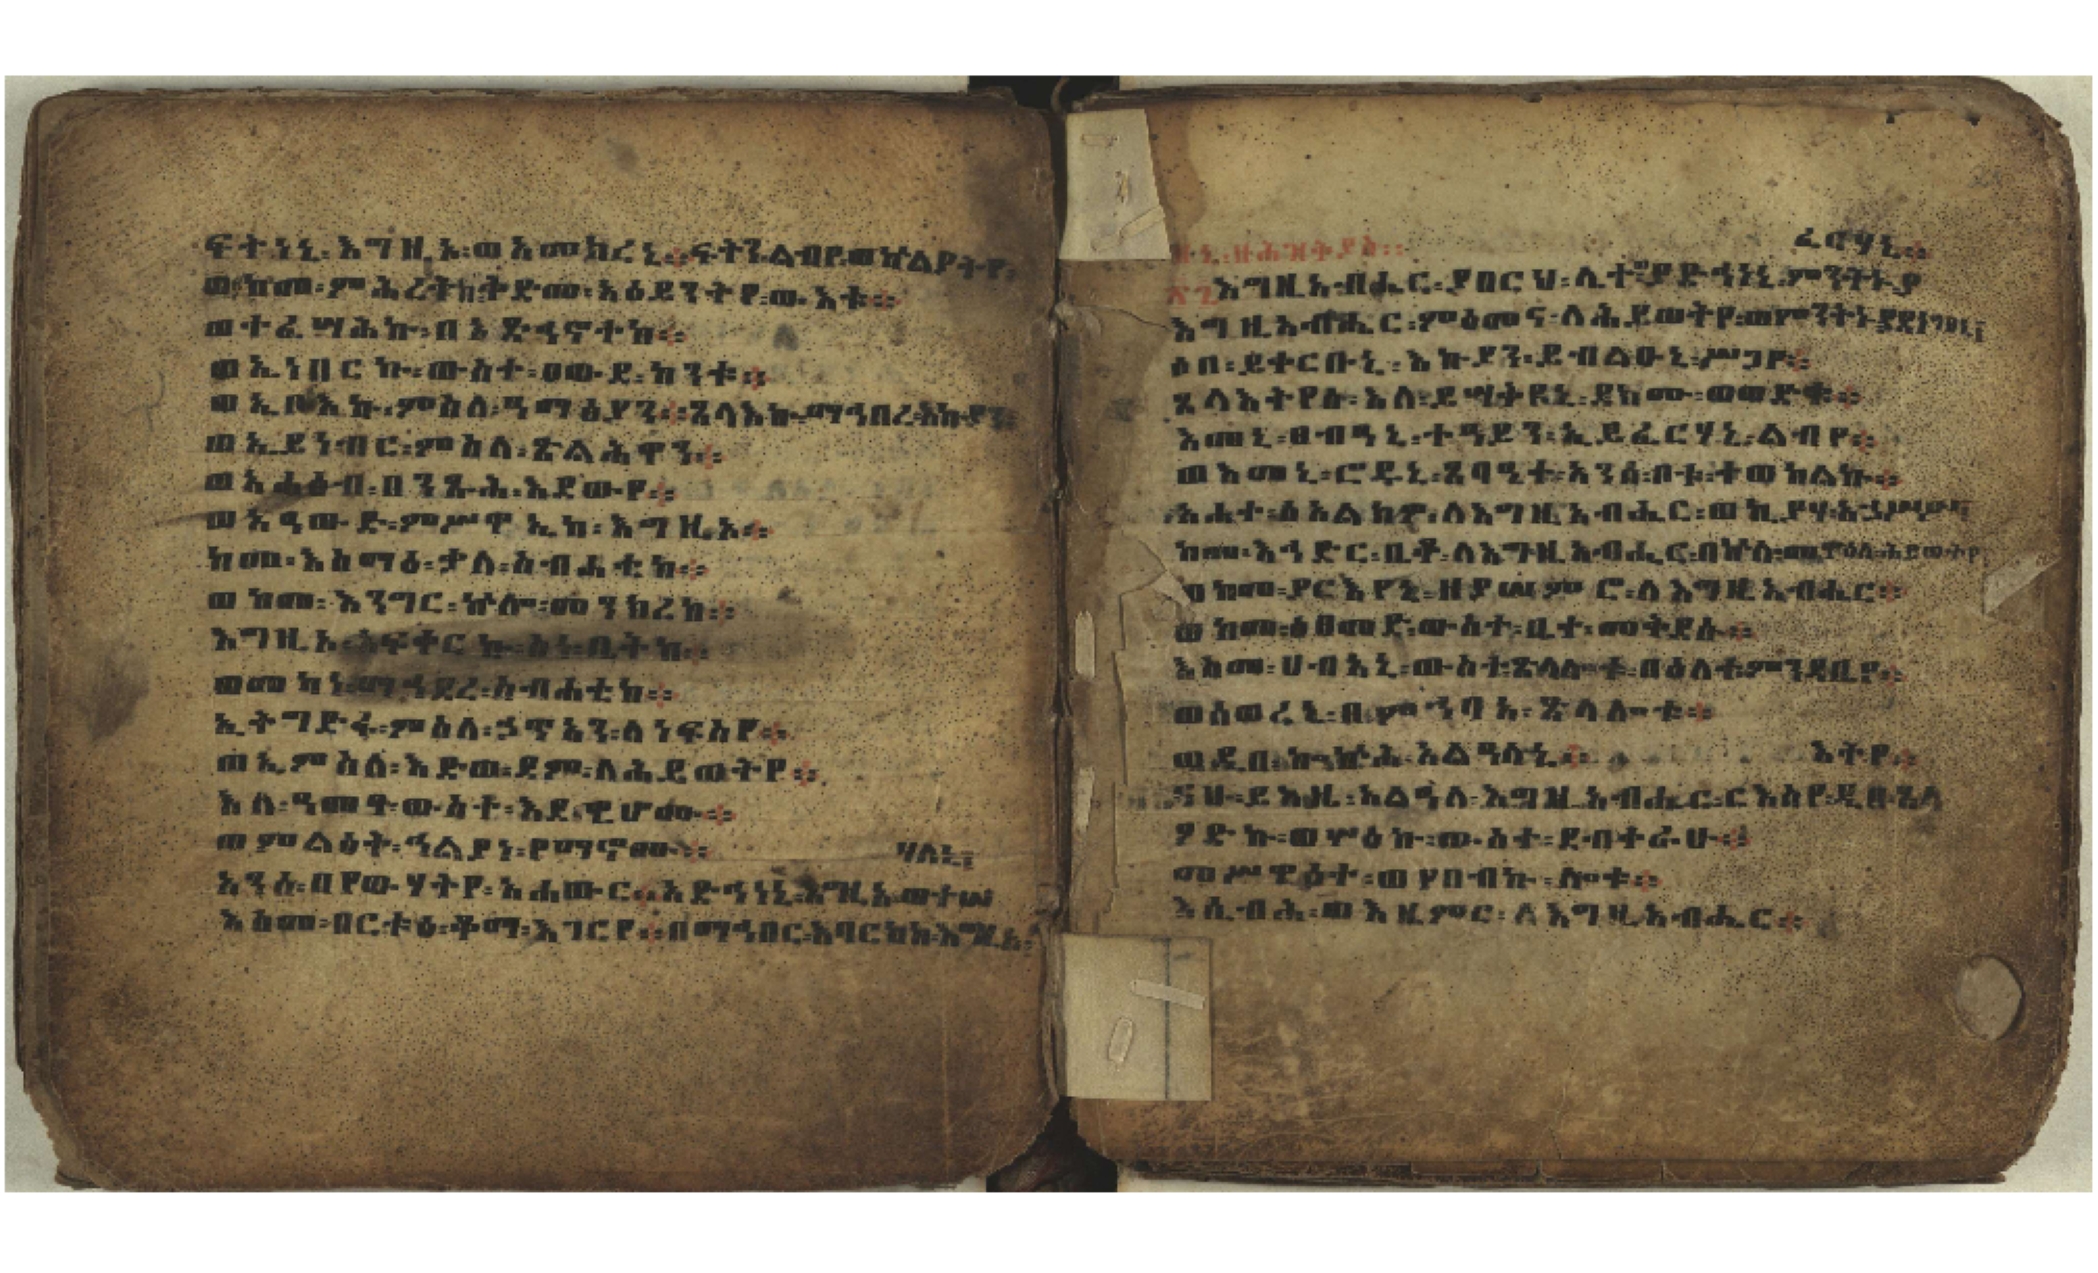 ፍትነኒ፡እግዚኦ፡ወአመክረኒ።ፍትን፡ልብየ፡ወኵልያትየ፡
ወከመ፡ምሕረትከ፡ቅድመ፡አዕይንትየ፡ውእቱ።
ወተፈሣሕኩ፡በአድኅኖትከ።
ወኢነበርኩ፡ውስተ፡ዐውደ፡ከንቱ።
ወኢቦእኩ፡ምስለ፡ዓማፅያን።ጸላእኩ፡ማኅበረ፡እኩያን፡
ወኢይነብር፡ምስለ፡ጽልሕዋን።
ወአሐፅብ፡በንጹሕ፡እደውየ።
ወአዓውድ፡ምሥዋኢከ፡እግዚኦ።
ከመ፡እስማዕ፡ቃለ፡ስብሐቲከ።
ወከመ፡እንግር፡ኵሎ፡መንክረከ።
እግዚኦ፡አፍቀርኩ፡ስነ፡ቤትከ።
ወመካነ፡ማኅደረ፡ስብሐቲከ።
ኢትግድፋ፡ምስለ፡ኃጥአን፡ለነፍስየ።
ወኢምስለ፡እድወ፡ደም፡ለሕይወትየ።
እለ፡ዓመፃ፡ውስተ፡እደዊሆሙ።
ወምልዕት፡ኅልያነ፡የማኖሙ። ሃለኒ፤
አንሰ፡በየውሃትየ፡አሐውር።አድኅነኒ፡እግዚኦ፡ወተሠ
እስመ፡በርቱዕ፡ቆማ፡እገርየ።በማኅበር፡እባርከከ፡እግዚኦ፡
ፈርሃኒ።
እግዚአብሔር፡ያበርህ፡ሊተ፡ወያድኅነኒ፡ምንትኑ፡ያ
እግዚአብሔር፡ምዕመና፡ለሕይወትየ፡ወምንትኑ፡ያደነግፀኒ፤
ሶበ፡ይቀርቡኒ፡እኩያን፡ይብልዑኒ፡ሥጋየ።
ጸላእትየሰ፡እለ፡ይሣቅዩኒ፡ደክሙ፡ወወድቁ።
እመኒ፡ፀብዓኒ፡ተዓይን፡ኢይፈርሃኒ፡ልብየ።
ወእመኒ፡ሮዱኒ፡ጸባዒተ፡አንሰ፡ቦቱ፡ተወከልኩ።
አሐተ፡ሰአልክዎ፡ለእግዚአብሔር፡ወኪያሃ፡አኃሥሥ፡
ከመ፡እኅድር፡ቤቶ፡ለእግዚአብሔር፡በኵሉ፡መዋዕለ፡ሕይወትየ፡
ወከመ፡ያርእየኒ፡ዘያሠምሮ፡ለእግዚአብሔር።
ወከመ፡ዕፀመድ፡ውስተ፡ቤተ፡መቅደሱ።
እስመ፡ኀብአኒ፡ውስተ፡ጽላሎቱ፡በዕለተ፡ምንዳቤየ።
ወሰወረኒ፡በምኅባአ፡ጽላሎቱ።
ወዲበ፡ኰኵሕ፡አልዓለኒ። እትየ።
ናሁ፡ይእዜ፡አልዓለ፡እግዚአብሔር፡ርእስየ፡ዲበ፡ጸላ
ዖድኩ፡ወሦዕኩ፡ውስተ፡ደብተራሁ።
መሥዋዕተ፡ወየበብኩ፡ሎቱ።
እሴብሕ፡ወእዜምር፡ለእግዚአብሔር።